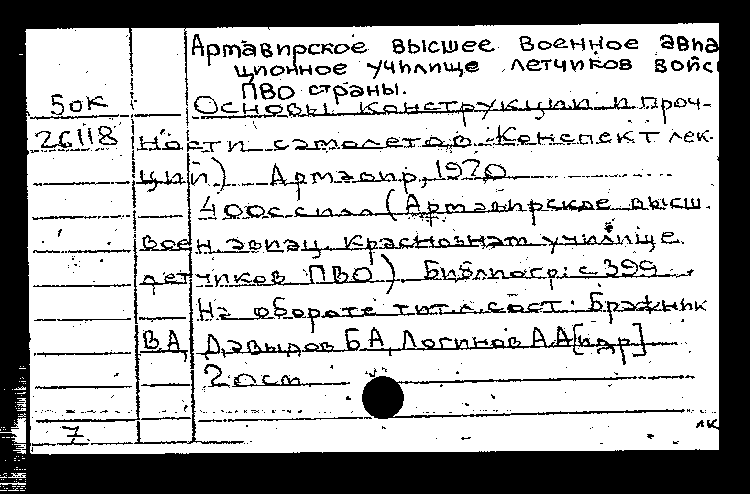 Армавирское высшее военное авиа
ционное училище летчиков войс
ПВО страны.
50к Основы конструкции и проч-
26118 ности самолетов. Конспект лек-
ций.) Армавир, 1970
400с с илл (Армавирское высш.
воен. авиац. краснознам училище
летчиков ПВО). Библиогр: с 399
На обороте тит. л. сост: Бражник
В.А, Давыдов Б А, Логинов А А [и др]
20 см
7
лк